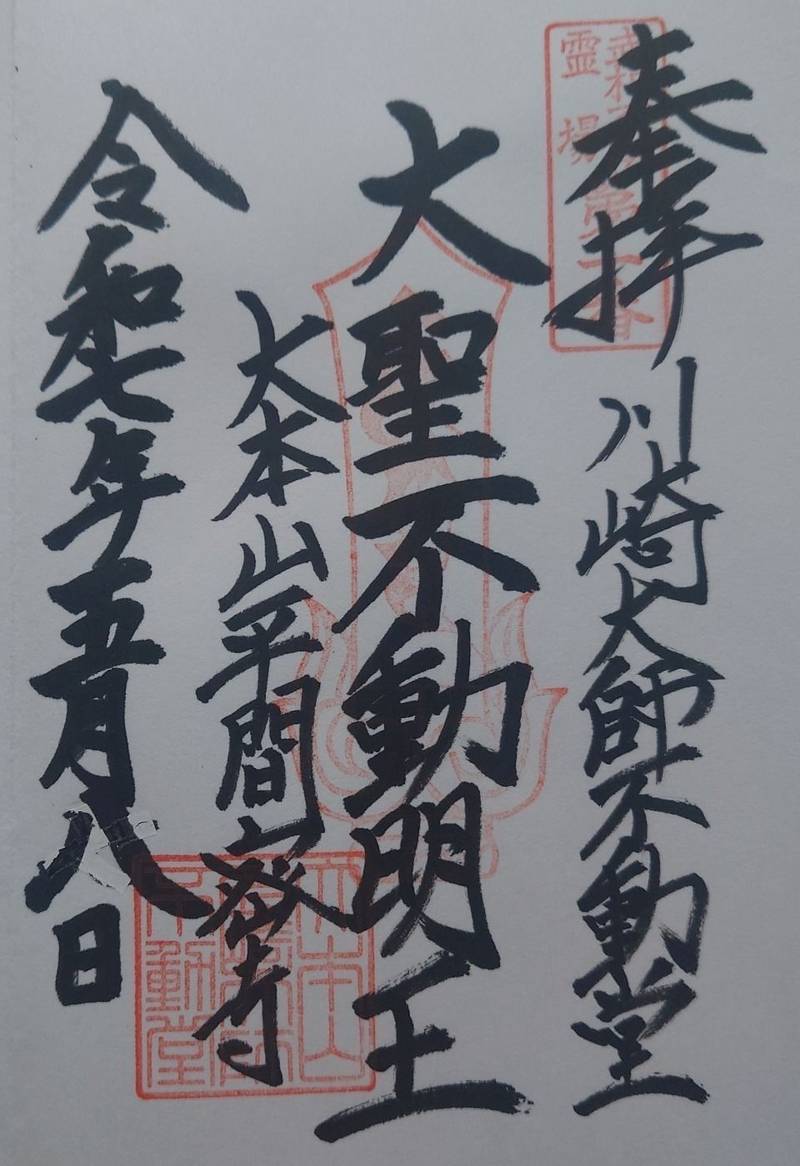 奉拝
川崎大師不動堂
大聖不動明王
大本山平間寺
令和七年五月八日
霊場
不動堂